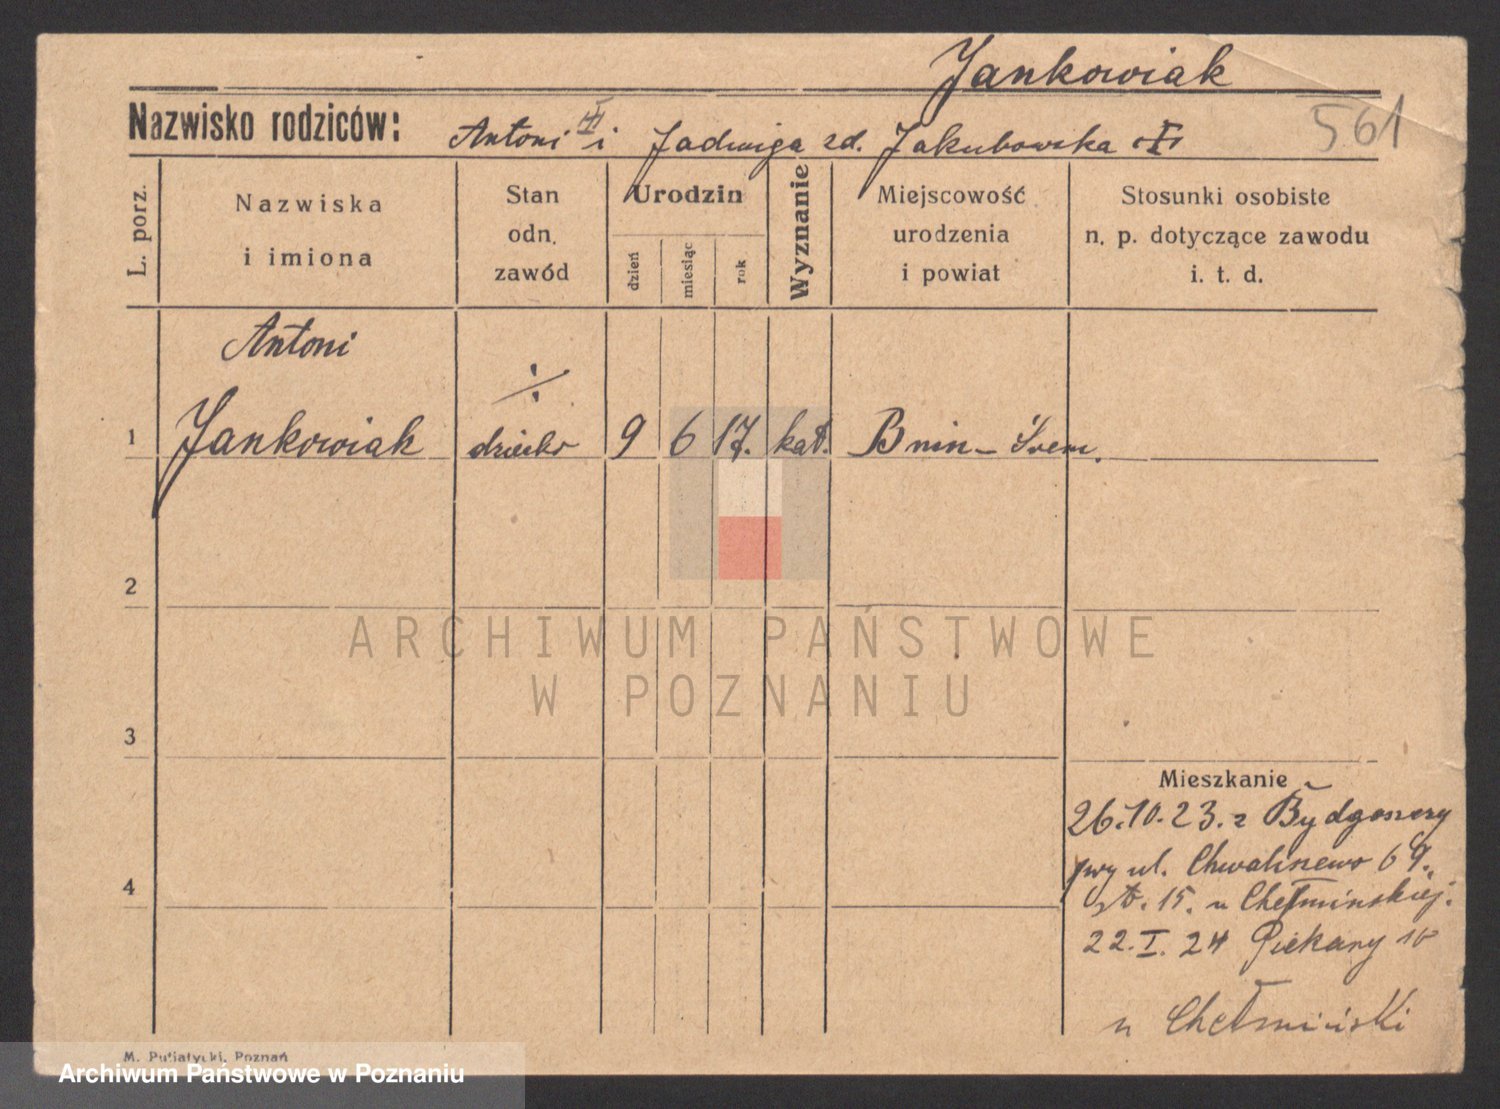 Jankowiak
Nazwisko rodziców: Antoni i Jadwiga zd. Jakubowska
561
L. porz.
Nazwiska
i imiona
Stan
odn.
zawód
Urodzin
dzień
miesiąc
rok
Wyznanie
Miejscowość
urodzenia
i powiat
Stosunki osobiste
n. p. dotyczące zawodu
i. t. d.
Antoni
1 Jankowiak dziecko 9 6 17. kat. Bnin - Śrem.
2
ARCHIWUM PAŃSTWOWE
W POZNANIU
3
Mieszkanie
26.10.23. z Bydgoszczy
przy ul. Chwaliszewo 69.
15. u Chełmińskiej.
4
22.I.24 Piekary
u Chełmiński
M. Putiatycki, Poznań
Archiwum Państwowe w Poznaniu